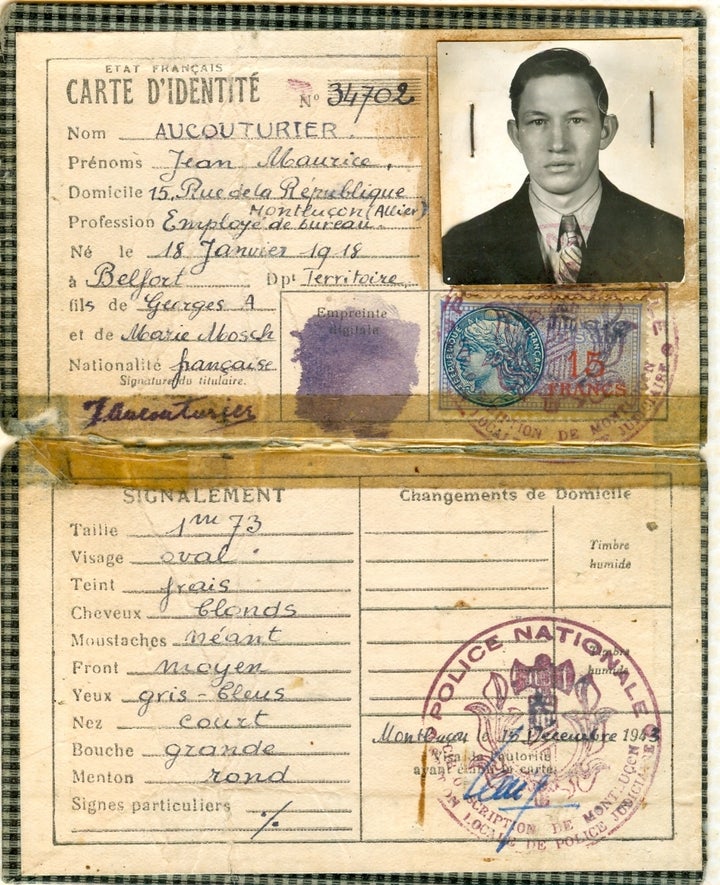 ETAT FRANÇAIS
CARTE D'IDENTITÉ
N° 34702
Nom AUCOUTURIER.
Prénoms Jean Maurice,
Domicile 15, Rue de la République
Montluçon (Allier)
Profession Employé de bureau.
Né le 18 Janvier 1918
à Belfort Dpt Territoire
fils de Georges A
et de Marie Mosch
Nationalité française
Signature du titulaire.
J Aucouturier
Empreinte
digitale
REPUBLIQUE FRANÇAISE
15
FRANCS
DE MONTLUÇON
LOCALE DE POLICE JUDICIAIRE
SIGNALEMENT
Taille 1m 73
Visage oval
Teint frais
Cheveux blonds
Moustaches néant
Front moyen
Yeux gris-bleus
Nez court
Bouche grande
Menton rond
Signes particuliers
Changements de Domicile
Timbre
humide
Timbre
humide
Montluçon le 15 Décembre 1943
Visa de l'autorité
ayant établi la carte
POLICE NATIONALE
CIRCONSCRIPTION DE MONTLUÇON
SECTION LOCALE DE POLICE JUDICIAIRE